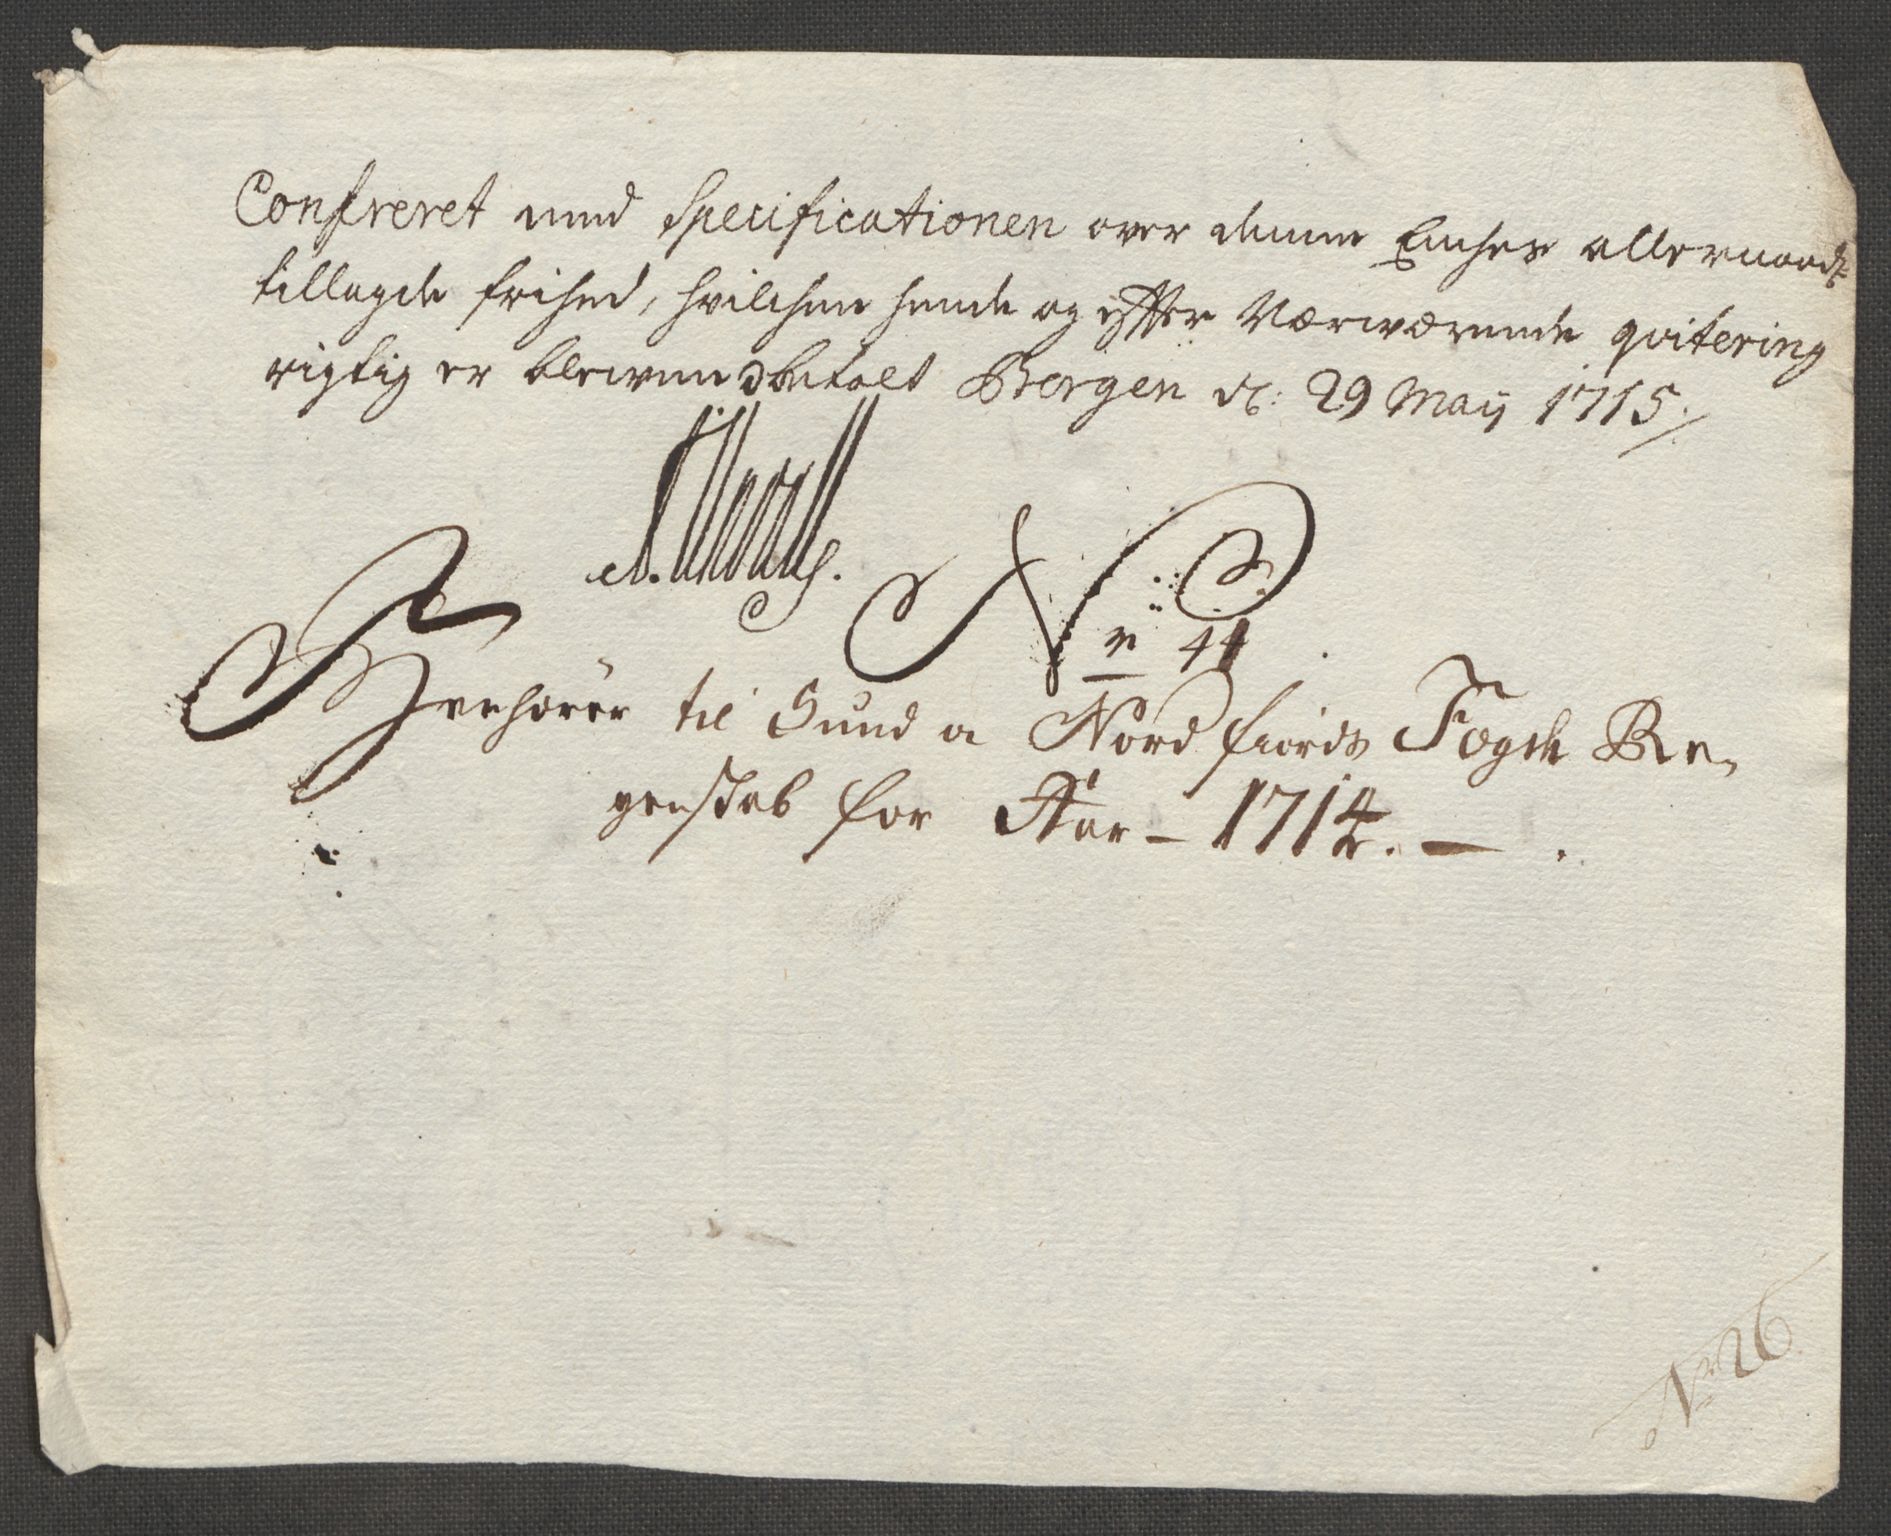 Confereret med Specificationen over denne Enches allernaadst
tillagde frihed, hvilchen hende og efter Værværende qvitering
rigtig er blewen betalt Bergen d: 29 Maij 1715.
N
r 44
Henhører til Sund a Nordfiords Fogde Re-
genskab for Aar - 1714. -
No 26